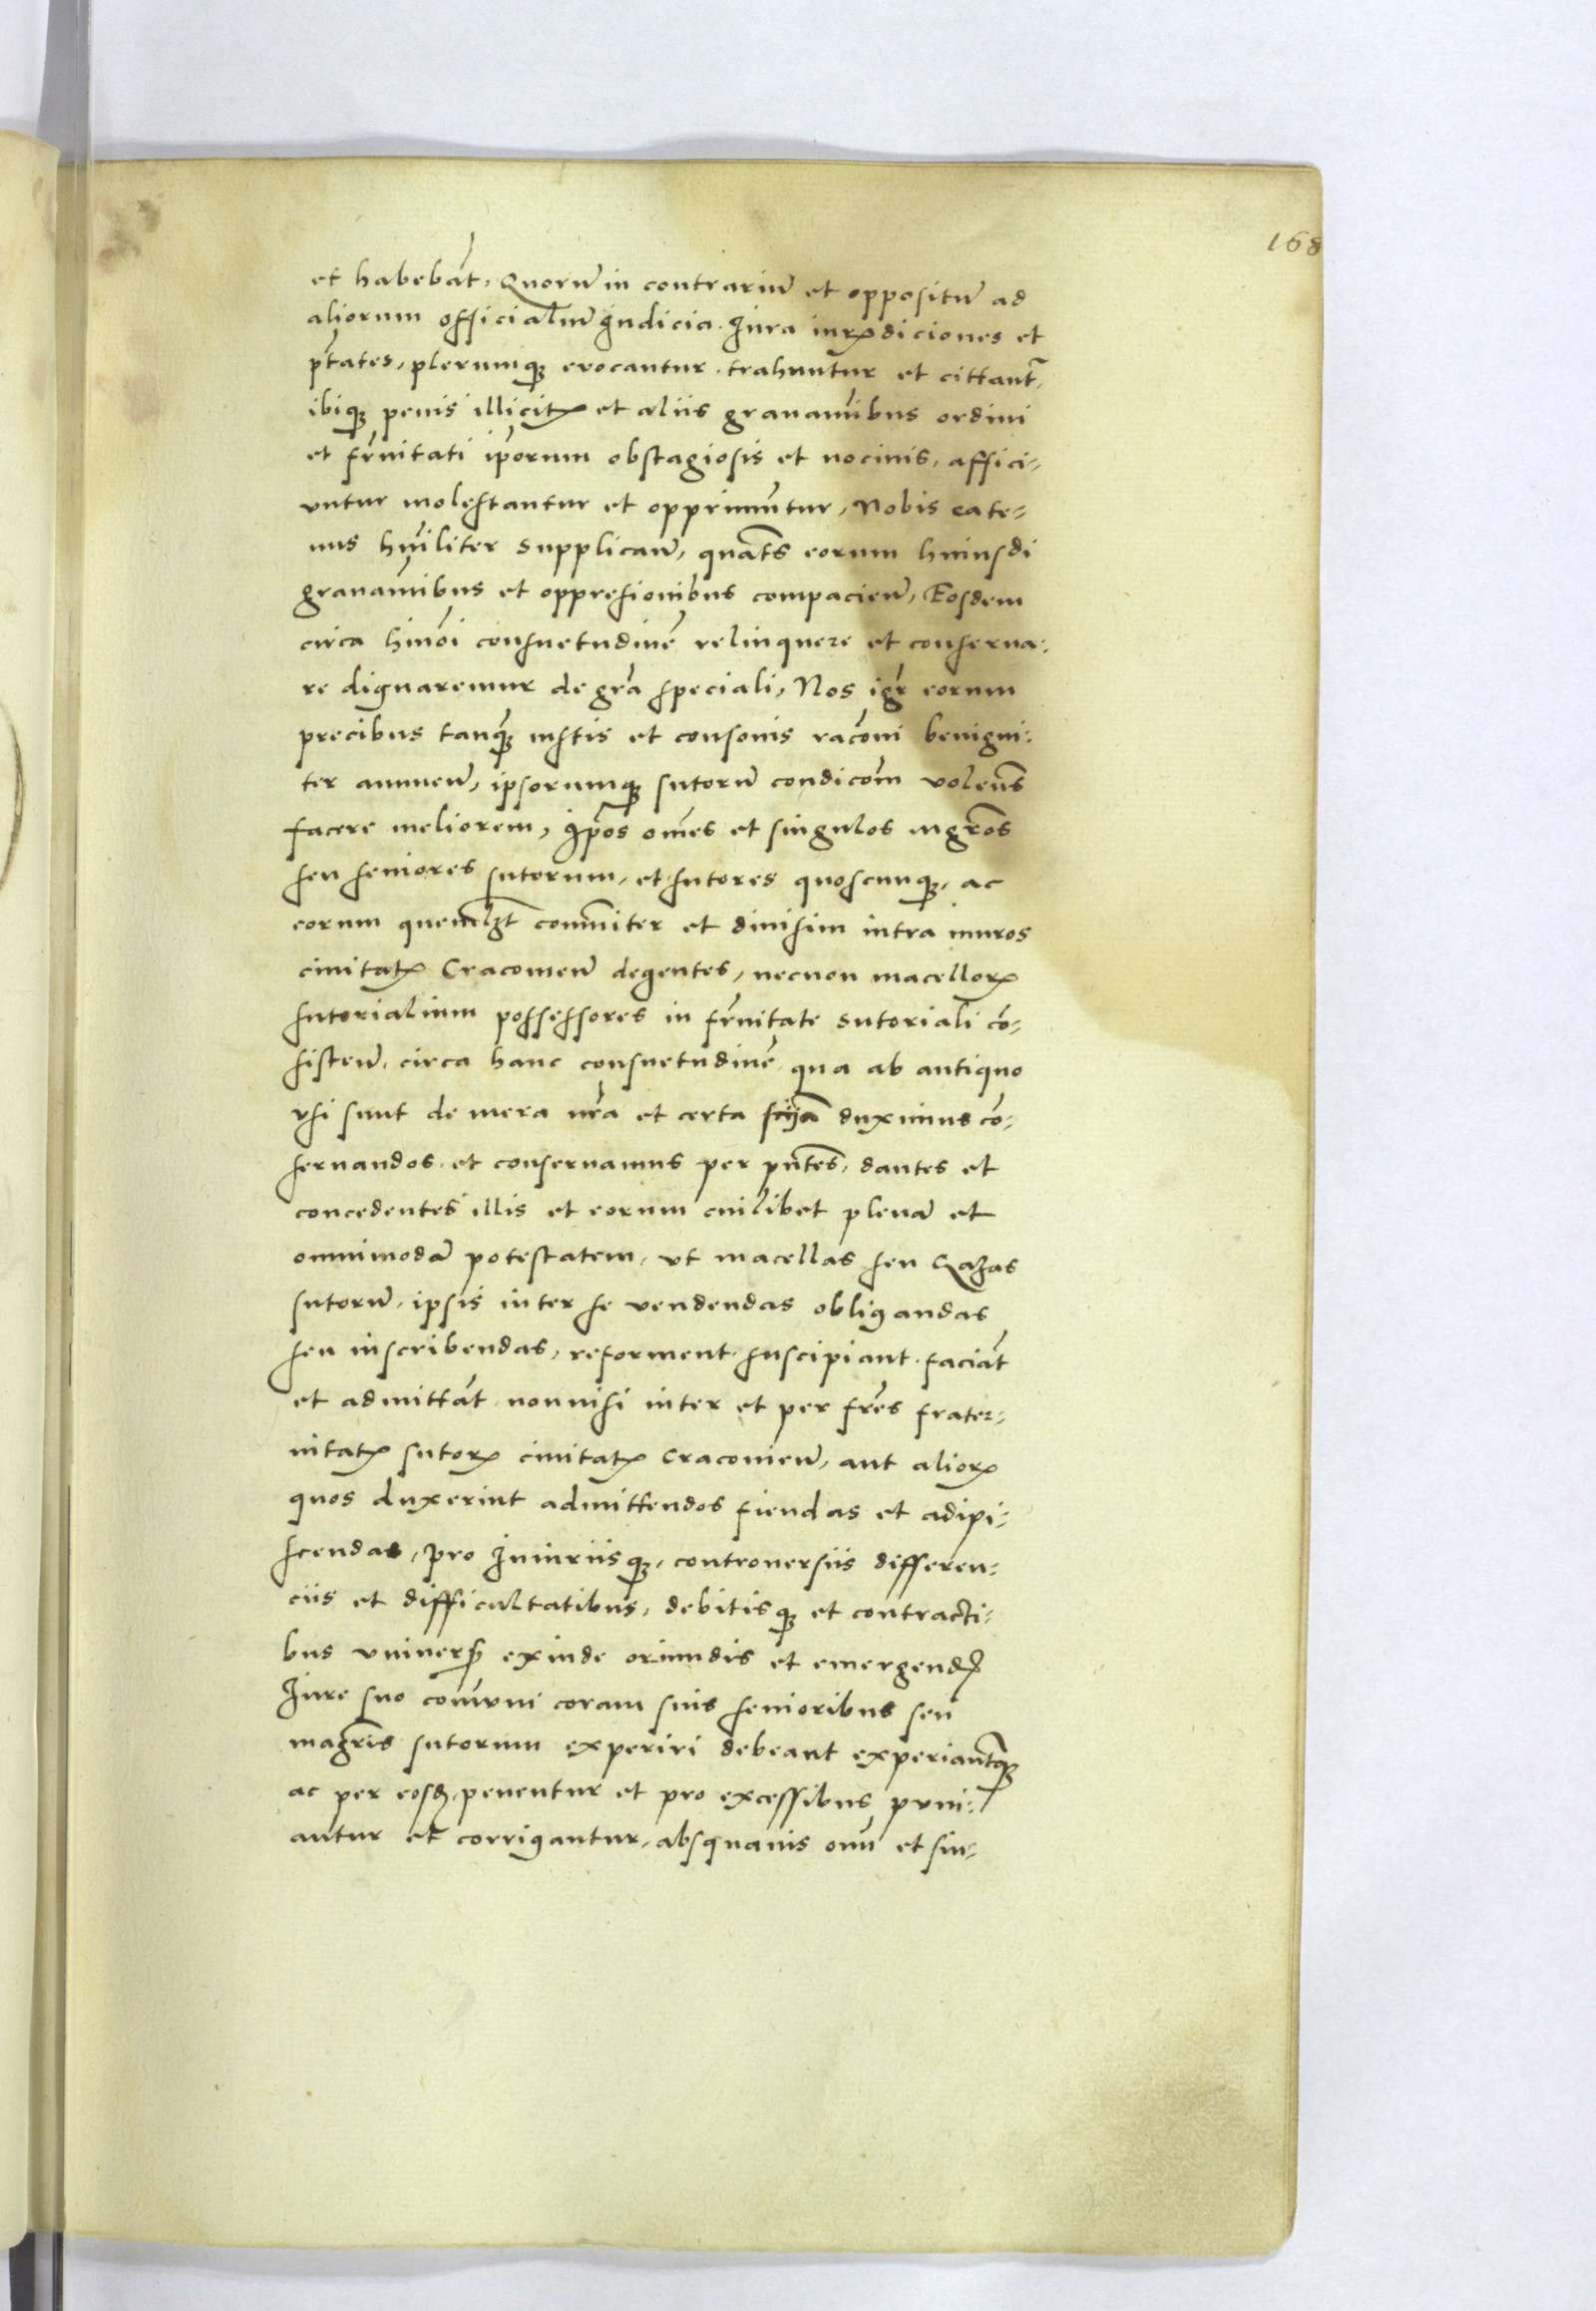 168
et habebāt, Quorū in contrariū et oppositū ad
aliorum officialiū Iudicia. Iura iurꝭdiciones et
ptātes, plerumqꝫ evocantur. trahuntur et cittantr̃,
ibiqꝫ penis illicitꝭ et aliis grauamībus ordini
et fr̄nitati ip̄orum obstagiosis et nociuis, affici⸗
untur molestantur et opprimūtur, Nobis eate⸗
nus hūiliter supplicaū, quāts eorum huiusdi
grauamībus et oppresionibus compacieū, Eosdem
circa hm̄oi consuetudinē relinquere et conserua⸗
re dignaremur de gr̄a speciali, Nos igr̄ eorum
precibus tanqꝫ iustis et consonis rac̄oni benigni⸗
ter annueū, ipsorumqꝫ sutorū condic̄om volen̄s
facere meliorem, Ip̄os om̄es et singulos mgr̄os
seu seniores sutorum, et sutores quoscunqꝫ, ac
eorum quemlꝫt com̄niter et diuisim intra muros
ciuitatꝭ Cracouieū degentes, necnon macellorꝭ
sutorialium possessores in fr̄nitate sutoriali cō⸗
sisteū, circa hanc consuetudinē qua ab antiquo
vsi sunt de mera nr̄a et certa scīa duximus cō⸗
seruandos et conseruamus per pn̄tes, dantes et
concedentes illis et eorum cuilibet plenā et
omnimodā potestatem, ut macellas seu Cazas
sutorū, ipsis inter se vendendas obligandas
seu inscribendas, reforment suscipiant faciāt
et admittāt nonnisi inter et per fr̄es frater⸗
nitatꝭ sutorꝭ ciuitatꝭ Cracouieū, aut aliorꝭ
quos duxerint admittendos fiendas et adipi⸗
scendas, pro Iniuriisqꝫ, controuersiis differen⸗
ciis et difficultatibus, debitisqꝫ et contracti⸗
bus vniversꝭ exinde oriundis et emergendꝭ
Iure suo com̄vni coram suis senioribus seu
magr̄is sutorum experiri debeant experiantr̃qꝫ
ac per eosdꝫ penentur et pro excessibus puni⸗
antur et corrigantur, absquauis om̄i et sin⸗